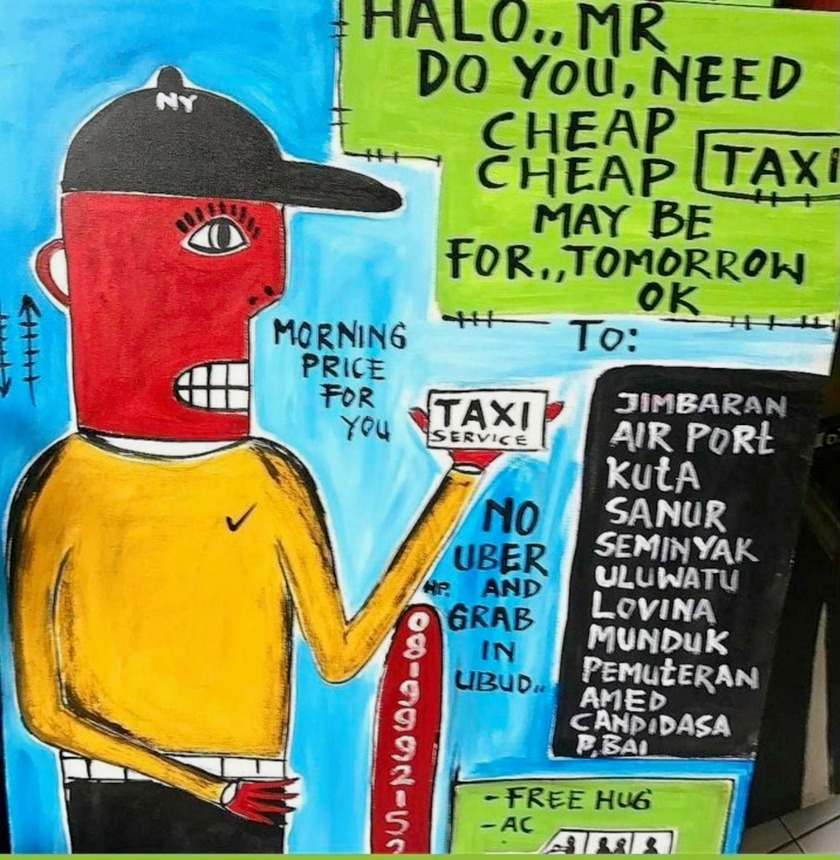 HALO,, MR
DO YOU, NEED
CHEAP
CHEAP TAXI
MAY BE
FOR,, TOMORROW
OK
NY
MORNING
PRICE
FOR
YOU
TAXI
SERVICE
NO
UBER
AND
GRAB
IN
UBUD,,
HP.
0
8
1
9
9
9
2
1
5
TO:
JIMBARAN
AIR PORt
KUtA
SANUR
SEMINYAK
ULUWATU
LOVINA
MUNDUK
PEMUtERAN
AMED
CANDIDASA
P,BAI
- FREE HUG
- AC